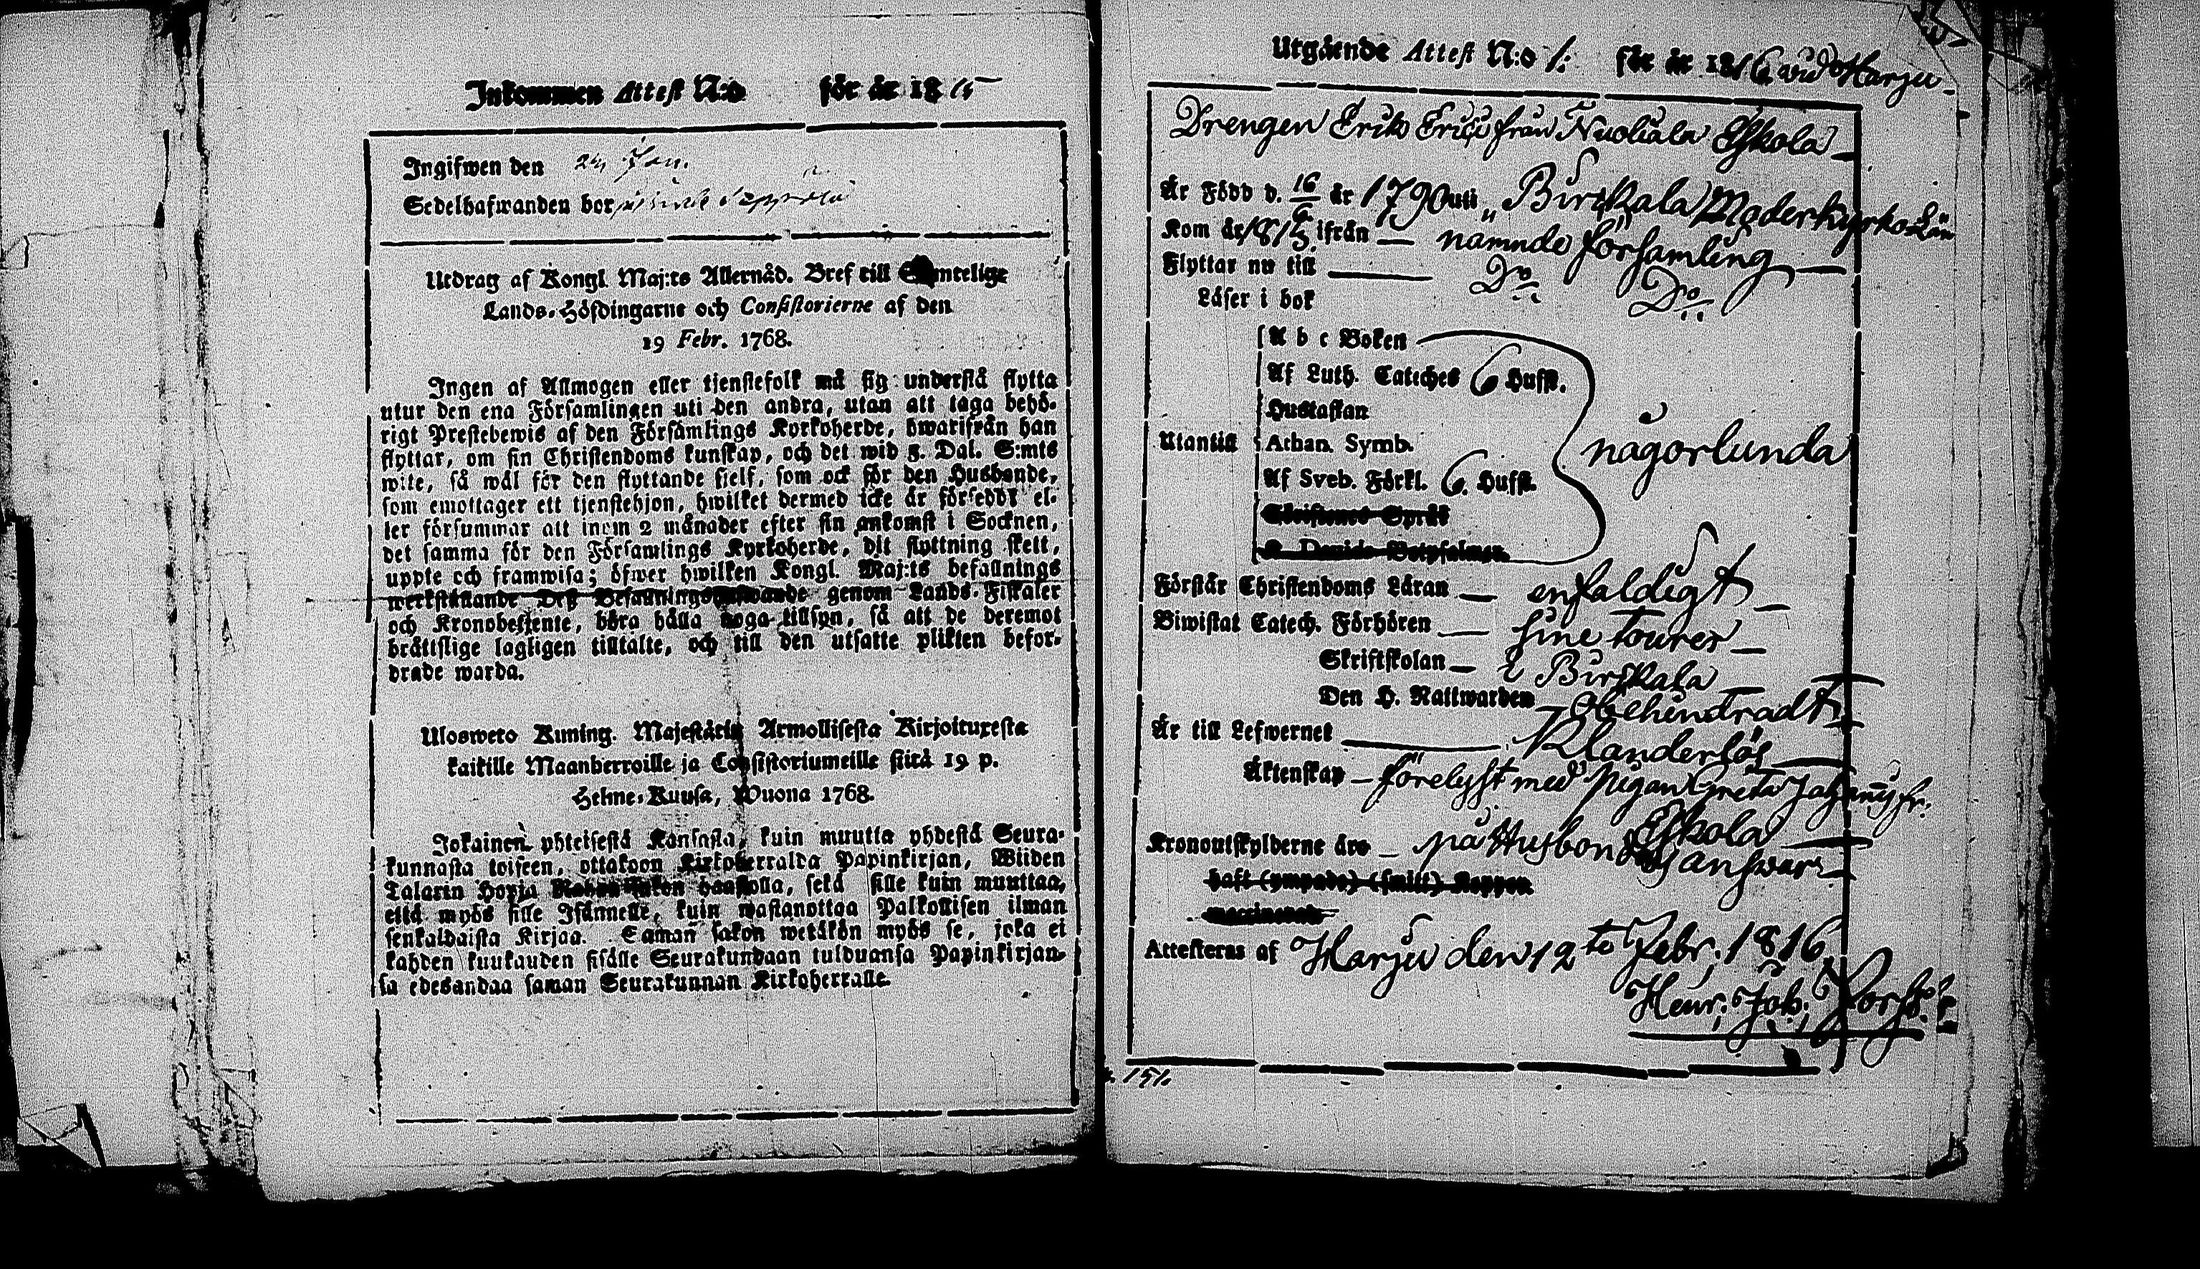 Inkommen Attest N:o för år 1815
Ingifwen den 24 Jan.
Sedelhafwanden bor
Utdrag af Kongl. Maj:ts Allernåd. Bref till Samtelige
Lands-Höfdingarne och Consistorierne af den
19 Febr. 1768.
Ingen af Allmogen eller tjenstefolk må sig understå flytta
utur den ena Församlingen uti den andra, utan att taga behö-
rigt Prestebewis af den Församlings Kyrkoherde, hwarifrån han
flyttar, om sin Christendoms kunskap, och det wid 5. Dal. S:mts
wite, så wäl för den flyttande sielf, som ock för den Husbonde,
som emottager ett tjenstehjon, hwilket dermed icke är försedt el-
ler försummar att inom 2 månader efter sin ankomst i Socknen,
det samma för den Församlings Kyrkoherde, dit flyttning skett,
uppte och framwisa; öfwer hwilken Kongl. Maj:ts befallnings
werkställande Deß Befallningshafwande genom Lands-Fiskaler
och Kronobetjente, böra hålla noga tillsyn, så att de deremot
bråttslige lagligen tilltalte, och till den utsatte plikten befor-
drade warda.
Uloswеto Kuning. Majestätin Armollisesta Kirjoituxesta
kaikille Maanherroille ja Consistoriumeille siitä 19 p.
Helme-Kuusa, Wuona 1768.
Jokainen yhteisestä Kansasta, kuin muutta yhdestä Seura-
kunnasta toiseen, ottakoon Kirkoherralda Papinkirjan, Wiiden
Talarin Hopia Rahan sakon haastolla, sekä sille kuin muuttaa,
että myös sille Isännelle, kuin wastanottaa Palkollisen ilman
senkaldaista Kirjaa. Saman sakon wetäkön myös se, joka ei
kahden kuukauden sisälle Seurakundaan tulduansa Papinkirjan-
sa edesandaa saman Seurakunnan Kirkoherralle.
Utgående Attest N:o 1: för år 1816 wid Harju
Drengen Erik Ericss från Nuoliala Eskola
Är Född d. 16/6 år 1790 uti Birckala Moderkyrko Län
Kom år 1815 ifrån namnde församling
Flyttar nu till Do Do
Läser i bok
A b c Boken
Af Luth. Cateches 6 Hufst.
Hustaflan
Utantill Athan. Symb. någorlunda
Af Sveb. Förkl. 6. Hufst.
Förstår Christendoms Läran enfaldigt
Biwistat Catech. Förhören sine tourer
Skriftskolan i Birckala
Den H. Nattwarden obehindradt
Är till Lefwernet Klanderlös
Äktenskap förelyst med Pigan Greta fr.
Eskola
Kronoutskylderne äro på Husbondes answar
Attesteras af Harju den 12te Febr; 1816
Henr; Joh;
151.